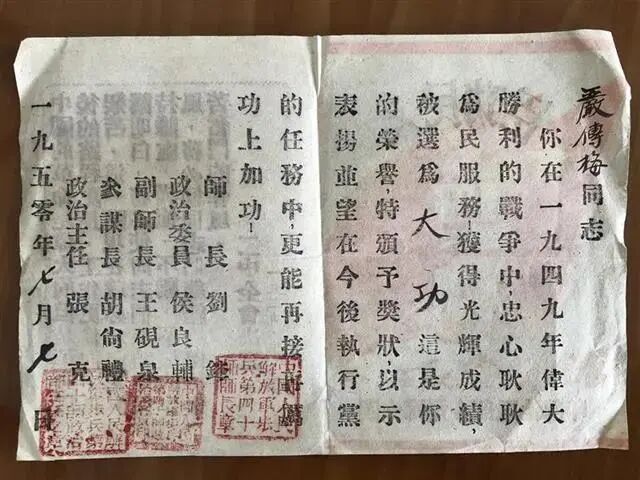 嚴傳梅同志
你在一九四九年偉大
勝利的戰爭中,忠心耿耿
為民服務!獲得光輝成績,
被選為 大功 這是你
的榮譽,特頒予獎狀,以示
表揚並望在今後執行黨
的任務中,更能再接
功上加功!
師長劉
政治委員侯良輔
副師長王硯泉
叅謀長胡尚禮
政治主任張克
一九五零年七月七日
解放軍步
兵第四十
師師長章